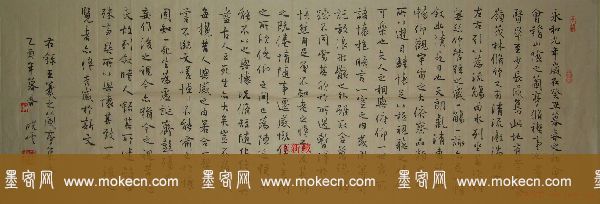 永和九年歲在癸丑暮春之初
會稽山陰之蘭亭脩稧事
賢畢至少長咸集此地
峻領茂林脩竹又有清流激湍
左右引以為流觴曲水列坐
雖無絲竹管弦之盛一觴一詠
敘幽情是日也天朗氣清
暢仰觀宇宙之大俯察品類
所以遊目騁懷足以極視聽之
可樂也夫人之相與俯仰一世或
諸懷抱晤言一室之內或因
託放浪形骸之外雖趣舍萬殊
不同當其欣於所遇暫得
快然自足不知老之將至
之既惓情隨事遷感慨係
之所欣俛仰之間
能不以之興懷況脩短隨化
盡古人云死生亦大矣豈不
每攬昔人興感之由若合
嘗不臨文嗟悼不能喻
固知一死生為虛誕齊彭
妄作後之視今亦猶今之視
故列敘時人錄其所述
殊事異所以興懷其致一也
覽者亦將有感於斯文
右錄王羲之蘭亭
乙酉年暮春
墨客网 www.mokecn.com
墨客网 www.mokecn.com
墨客网 www.mokecn.com